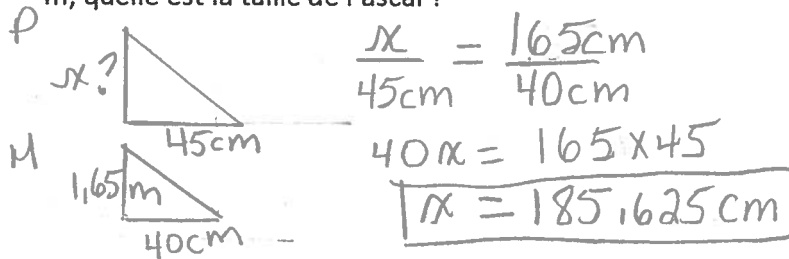 m, quelle est la taille de Pascal ?
P
x?
45cm
M
1,65m
40cm
x/45cm = 165cm/40cm
40x = 165 x 45
x = 185,625 cm